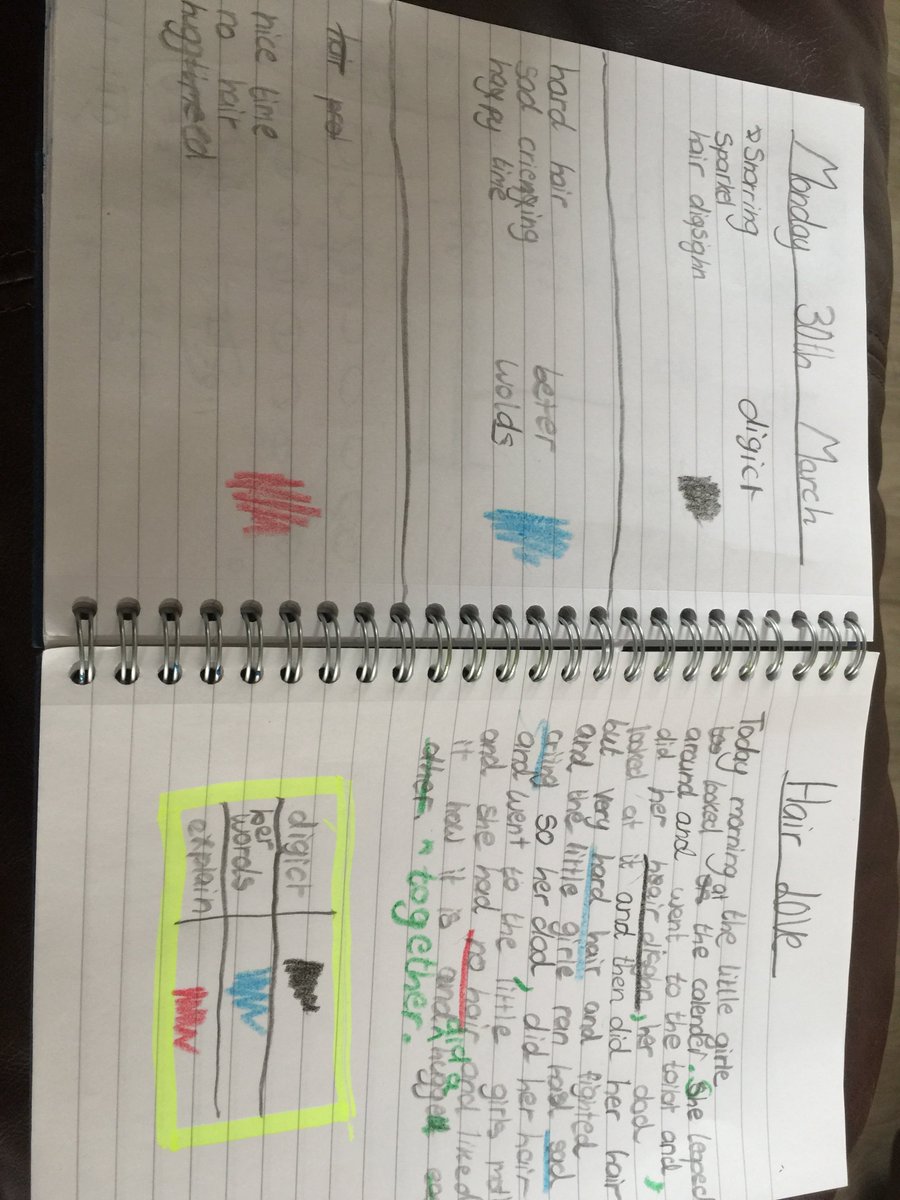 Monday 30th March
Snorring
digict
sparkel
hair digsighn
hard hair
sad crienging
beter
happy time
wolds
hair
nice time
no hair
hugtimeed
Hair Love
Today morning at the little girle
looked the calender. She leaped
around and went to the tolot and,
did her heair disgn, her dad,
looked at it and then did her hair
but very hard hair and fighted
and the little girle ran had sad
criing so her dad, did her hair
and went to the little girls
and she had no hair and liked
it how it is and did a
together.
digict
her
words
explain